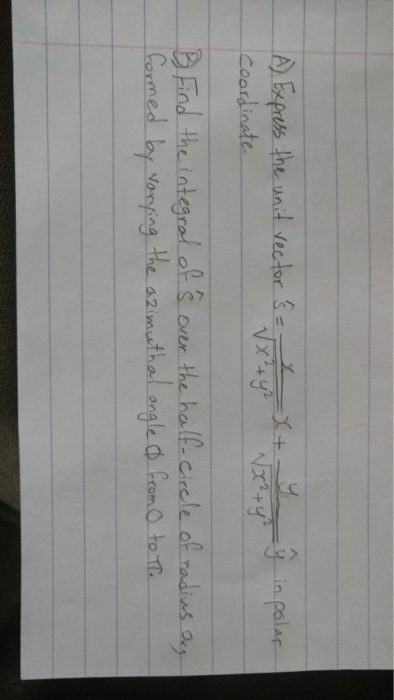 A) Express the unit vector ŝ = x/√x²+y² x + y/√x²+y² ŷ in polar
coordinate.
B) Find the integral of ŝ over the half-circle of radius a,
formed by varying the azimuthal angle Φ from 0 to π.